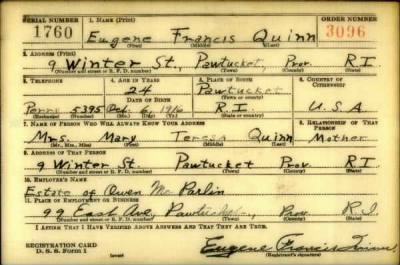 SERIAL NUMBER 1. NAME (Print) ORDER NUMBER
1760 Eugene Francis Quinn 3096
(First) (Middle) (Last)
2. ADDRESS (Print)
9 Winter St., Pawtucket, Prov. R.I.
(Number and street or R. F. D. number) (Town) (County) (State)
3. TELEPHONE 4. AGE IN YEARS 5. PLACE OF BIRTH 6. COUNTRY OF CITIZENSHIP
24 Pawtucket
DATE OF BIRTH (Town or county)
Perry 5395 Oct. 6, 1916 R.I. U.S.A
(Exchange) (Number) (Mo.) (Day) (Yr.) (State or country)
7. NAME OF PERSON WHO WILL ALWAYS KNOW YOUR ADDRESS 8. RELATIONSHIP OF THAT PERSON
Mrs. Mary Teresa Quinn Mother
(Mr., Mrs., Miss) (First) (Middle) (Last)
9. ADDRESS OF THAT PERSON
9 Winter St. Pawtucket Prov. R.I.
(Number and street or R. F. D. number) (Town) (County) (State)
10. EMPLOYER'S NAME
Estate of Owen McParlin
11. PLACE OF EMPLOYMENT OR BUSINESS
99 East Ave., Pawtucket, Prov. R.I.
(Number and street or R. F. D. number) (Town) (County) (State)
I AFFIRM THAT I HAVE VERIFIED ABOVE ANSWERS AND THAT THEY ARE TRUE.
REGISTRATION CARD Eugene Francis Quinn
D. S. S. Form 1 (Registrant's signature)